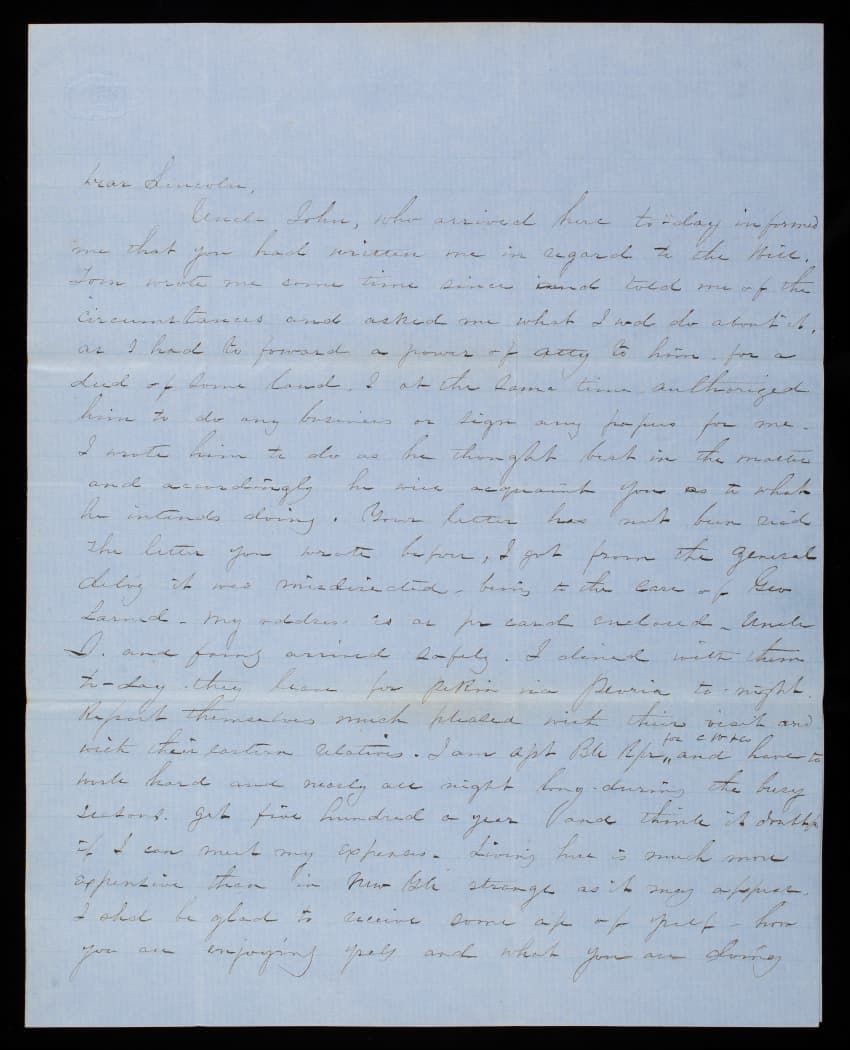 Dear Lincoln,
Uncle John, who arrived here to-day informed
me that you had written me in regard to the Will.
Tom wrote me some time since and told me of the
circumstances and asked me what I wd do about it,
as I had to forward a power of atty to him for a
deed of some land. I at the same time authorized
him to do any business or sign any papers for me.
I wrote him to do as he thought best in the matter
and accordingly he will acquaint you as to what
he intends doing. Your letter has not been recd
The letter you wrote before, I got from the general
delvy it was misdirected - being to the care of Geo
Larned - My address is as pr card enclosed - Uncle
J. and family arrived safely. I dined with them
to-day they leave for Pekin via Peoria to-night.
Report themselves much pleased with their visit and
with their eastern relatives. I am apt Bk Kpr and have to
work hard and nearly all night long during the busy
seasons. Get five hundred a year and think it doubtful
if I can meet my expenses. Living here is much more
expensive than in New strange as it may appear.
I shd be glad to receive some a/c of yrself - how
you are enjoying yrself and what you are doing